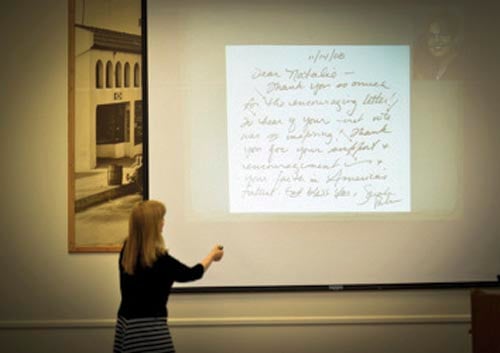 11/14/08
Dear Natalie –
Thank you so much
for the encouraging letter!
To hear of your vote
was so inspiring! Thank
you for your support &
encouragement &
your faith in America's
future. God bless you, Sarah